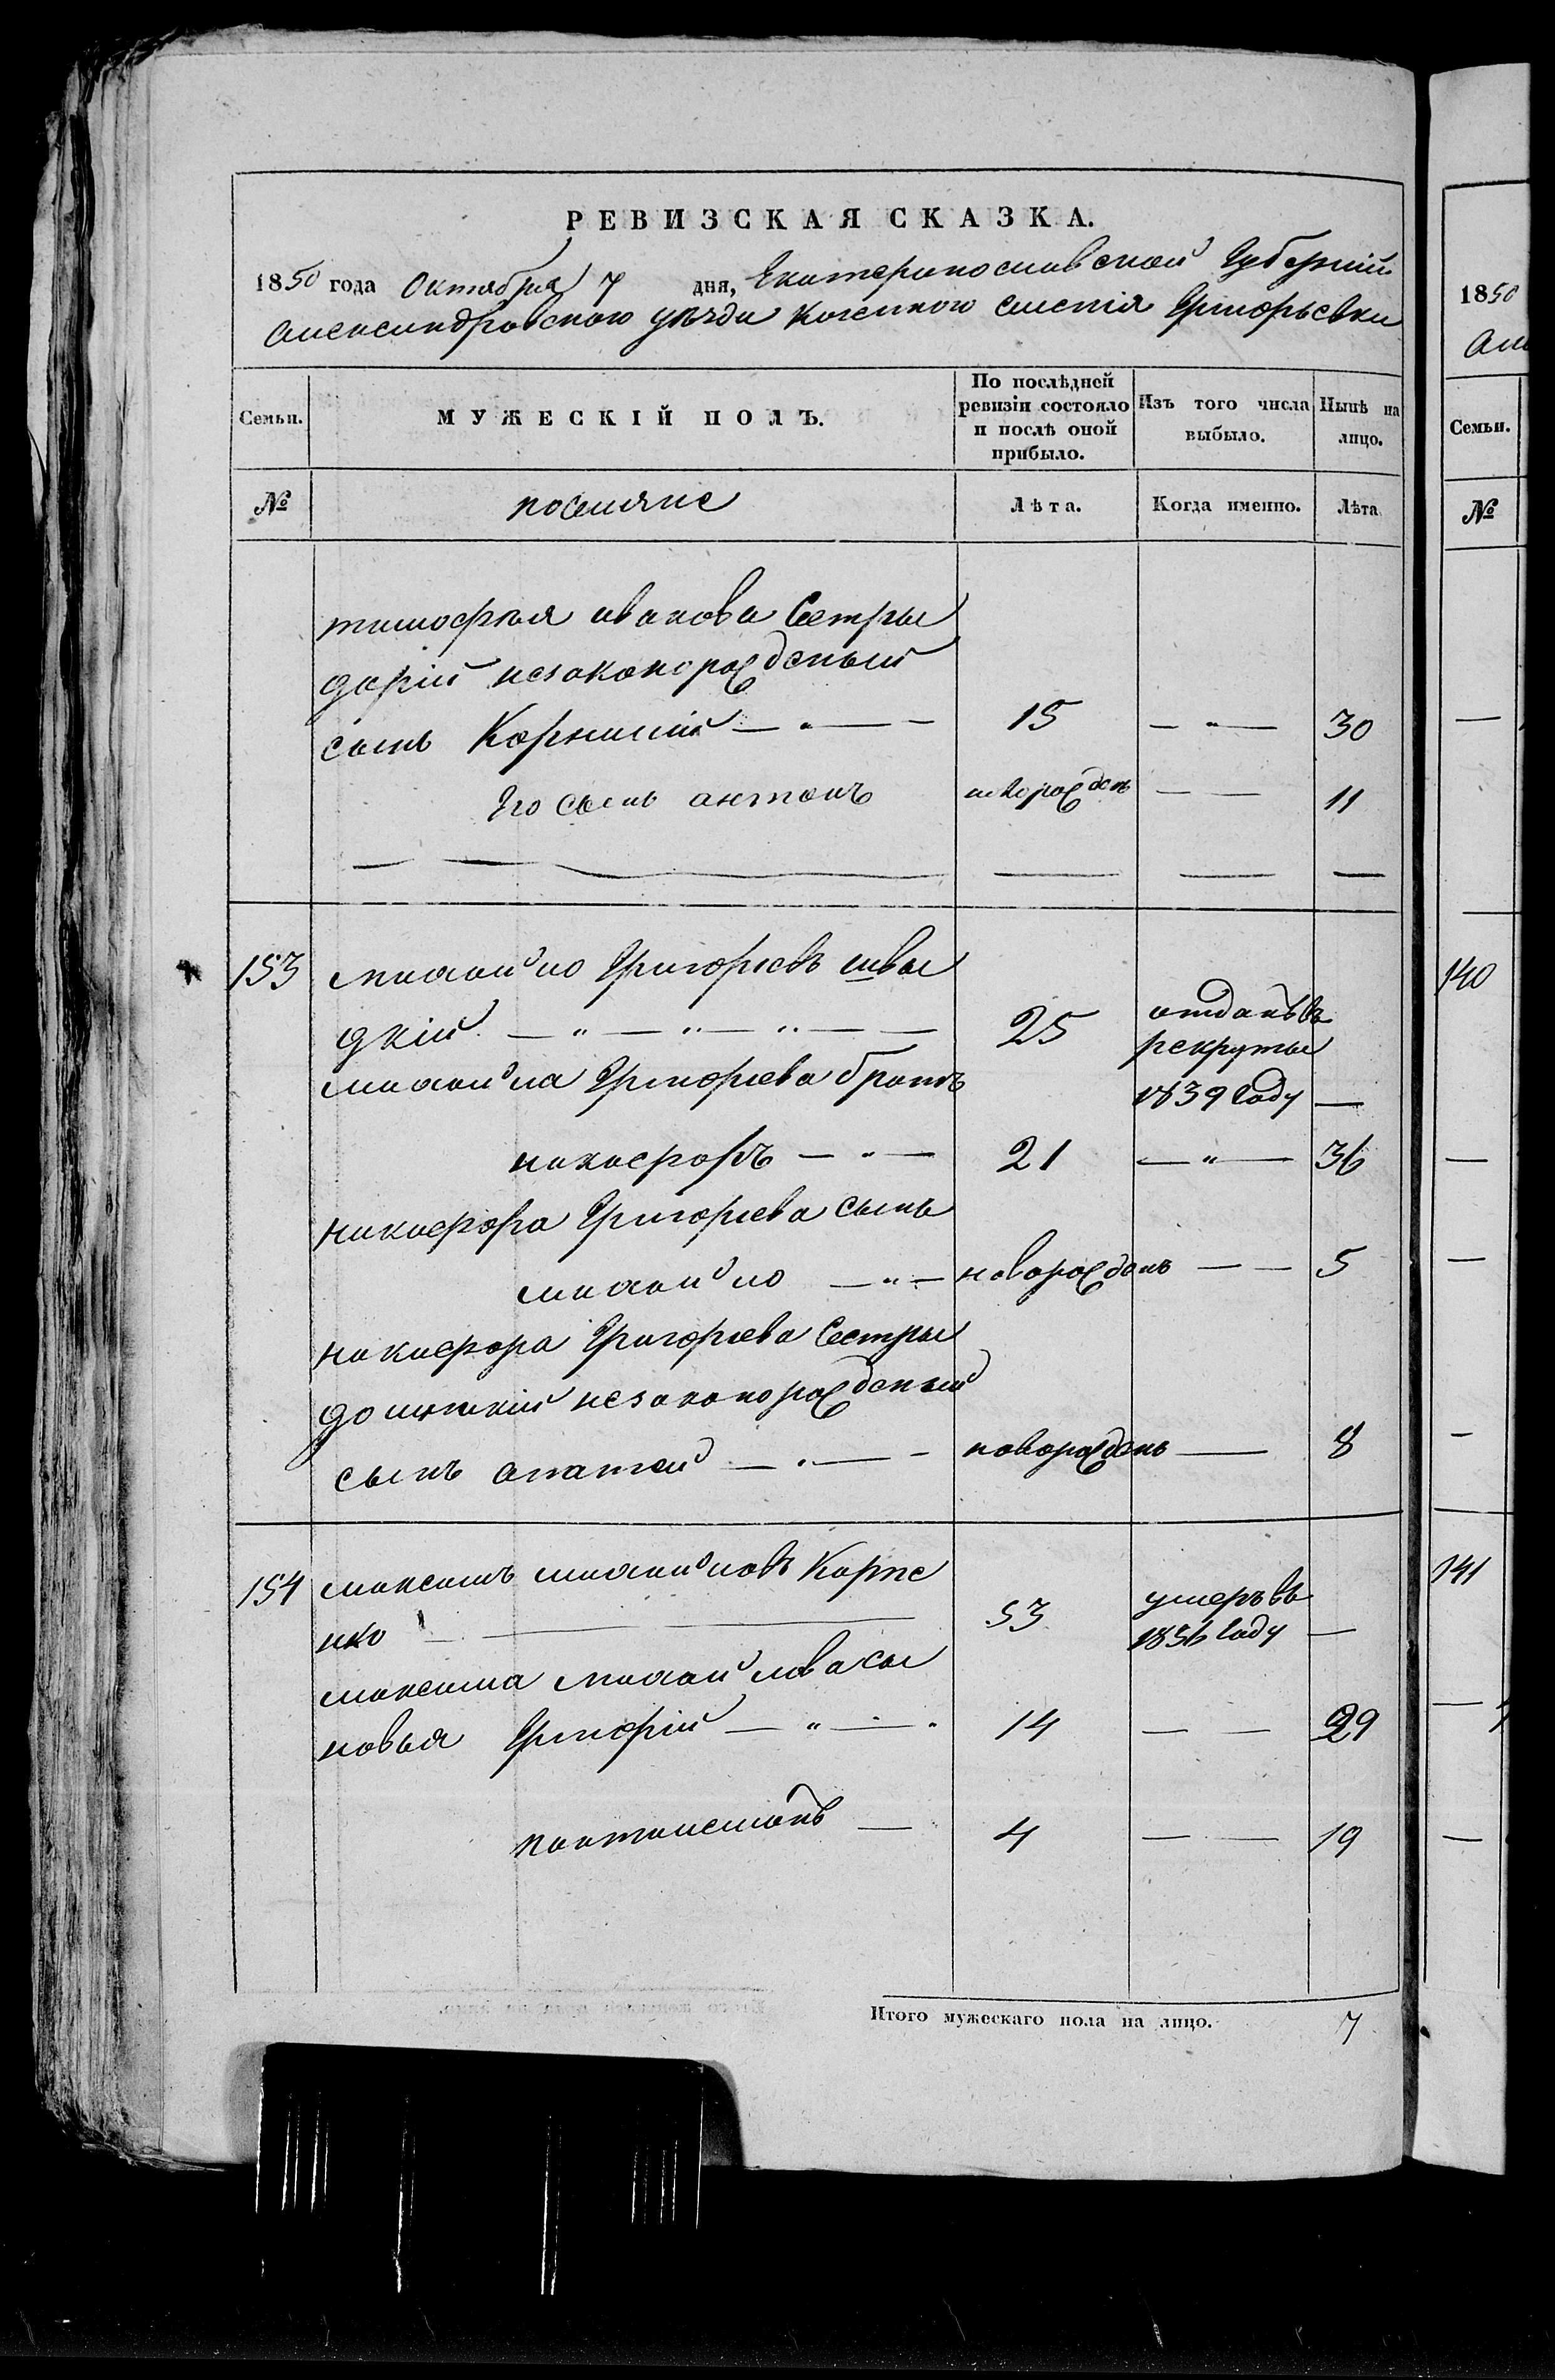 РЕВИЗСКАЯ СКАЗКА.
1850 года Октября 7 дня, Екатеринославской Губерніи
Александровского уѣзда Казенного селенія Григорьевки
Семьи. МУЖЕСКІЙ ПОЛЪ. По послѣдней ревизіи состояло и послѣ оной прибыло. Изъ того числа выбыло. Нынѣ на лицо.
№ поселяне Лѣта. Когда именно. Лѣта
тимофѣя иванова Сестры
даріи незаконорожденый
сынъ Корнилий — " — — 15 — " — 30
Его сынъ антонъ новорожденъ — — 11
153 михайло Григорьевъ швы
дкій — " — " — " — — 25 отданъ въ
рекруты
михайла Григорьева братъ 1839 году —
никифоръ — " — 21 — " — 36
никифора Григорьева сынъ
михайло — " — новорожденъ — — 5
никифора Григорьева Сестры
незаконорожденый
сынъ — " — — новорожденъ — 8
154 максимъ михайловъ Карпе
нко — — 53 умеръ въ
1836 году —
максима михайлова сы
новья Григорій — " — " 14 — — 29
пантилимонъ — 4 — — 19
Итого мужескаго пола на лицо. 7
1850
Але
Семьи.
№
140
141